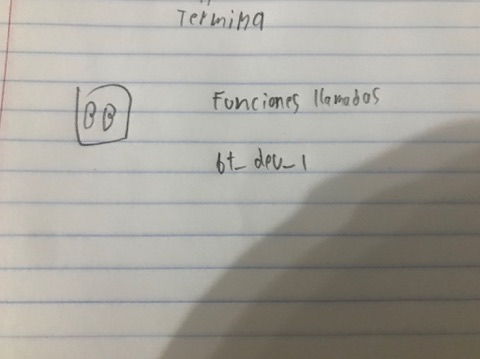 Termina
Funciones llamadas
bt_dev_1